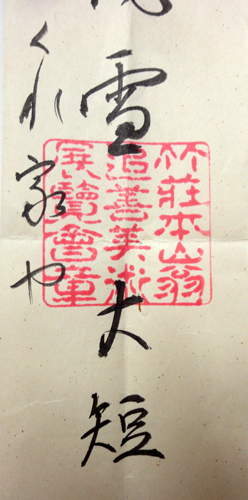 雪大短
くれ家や
竹莊本山翁
追善美術
展覽會章